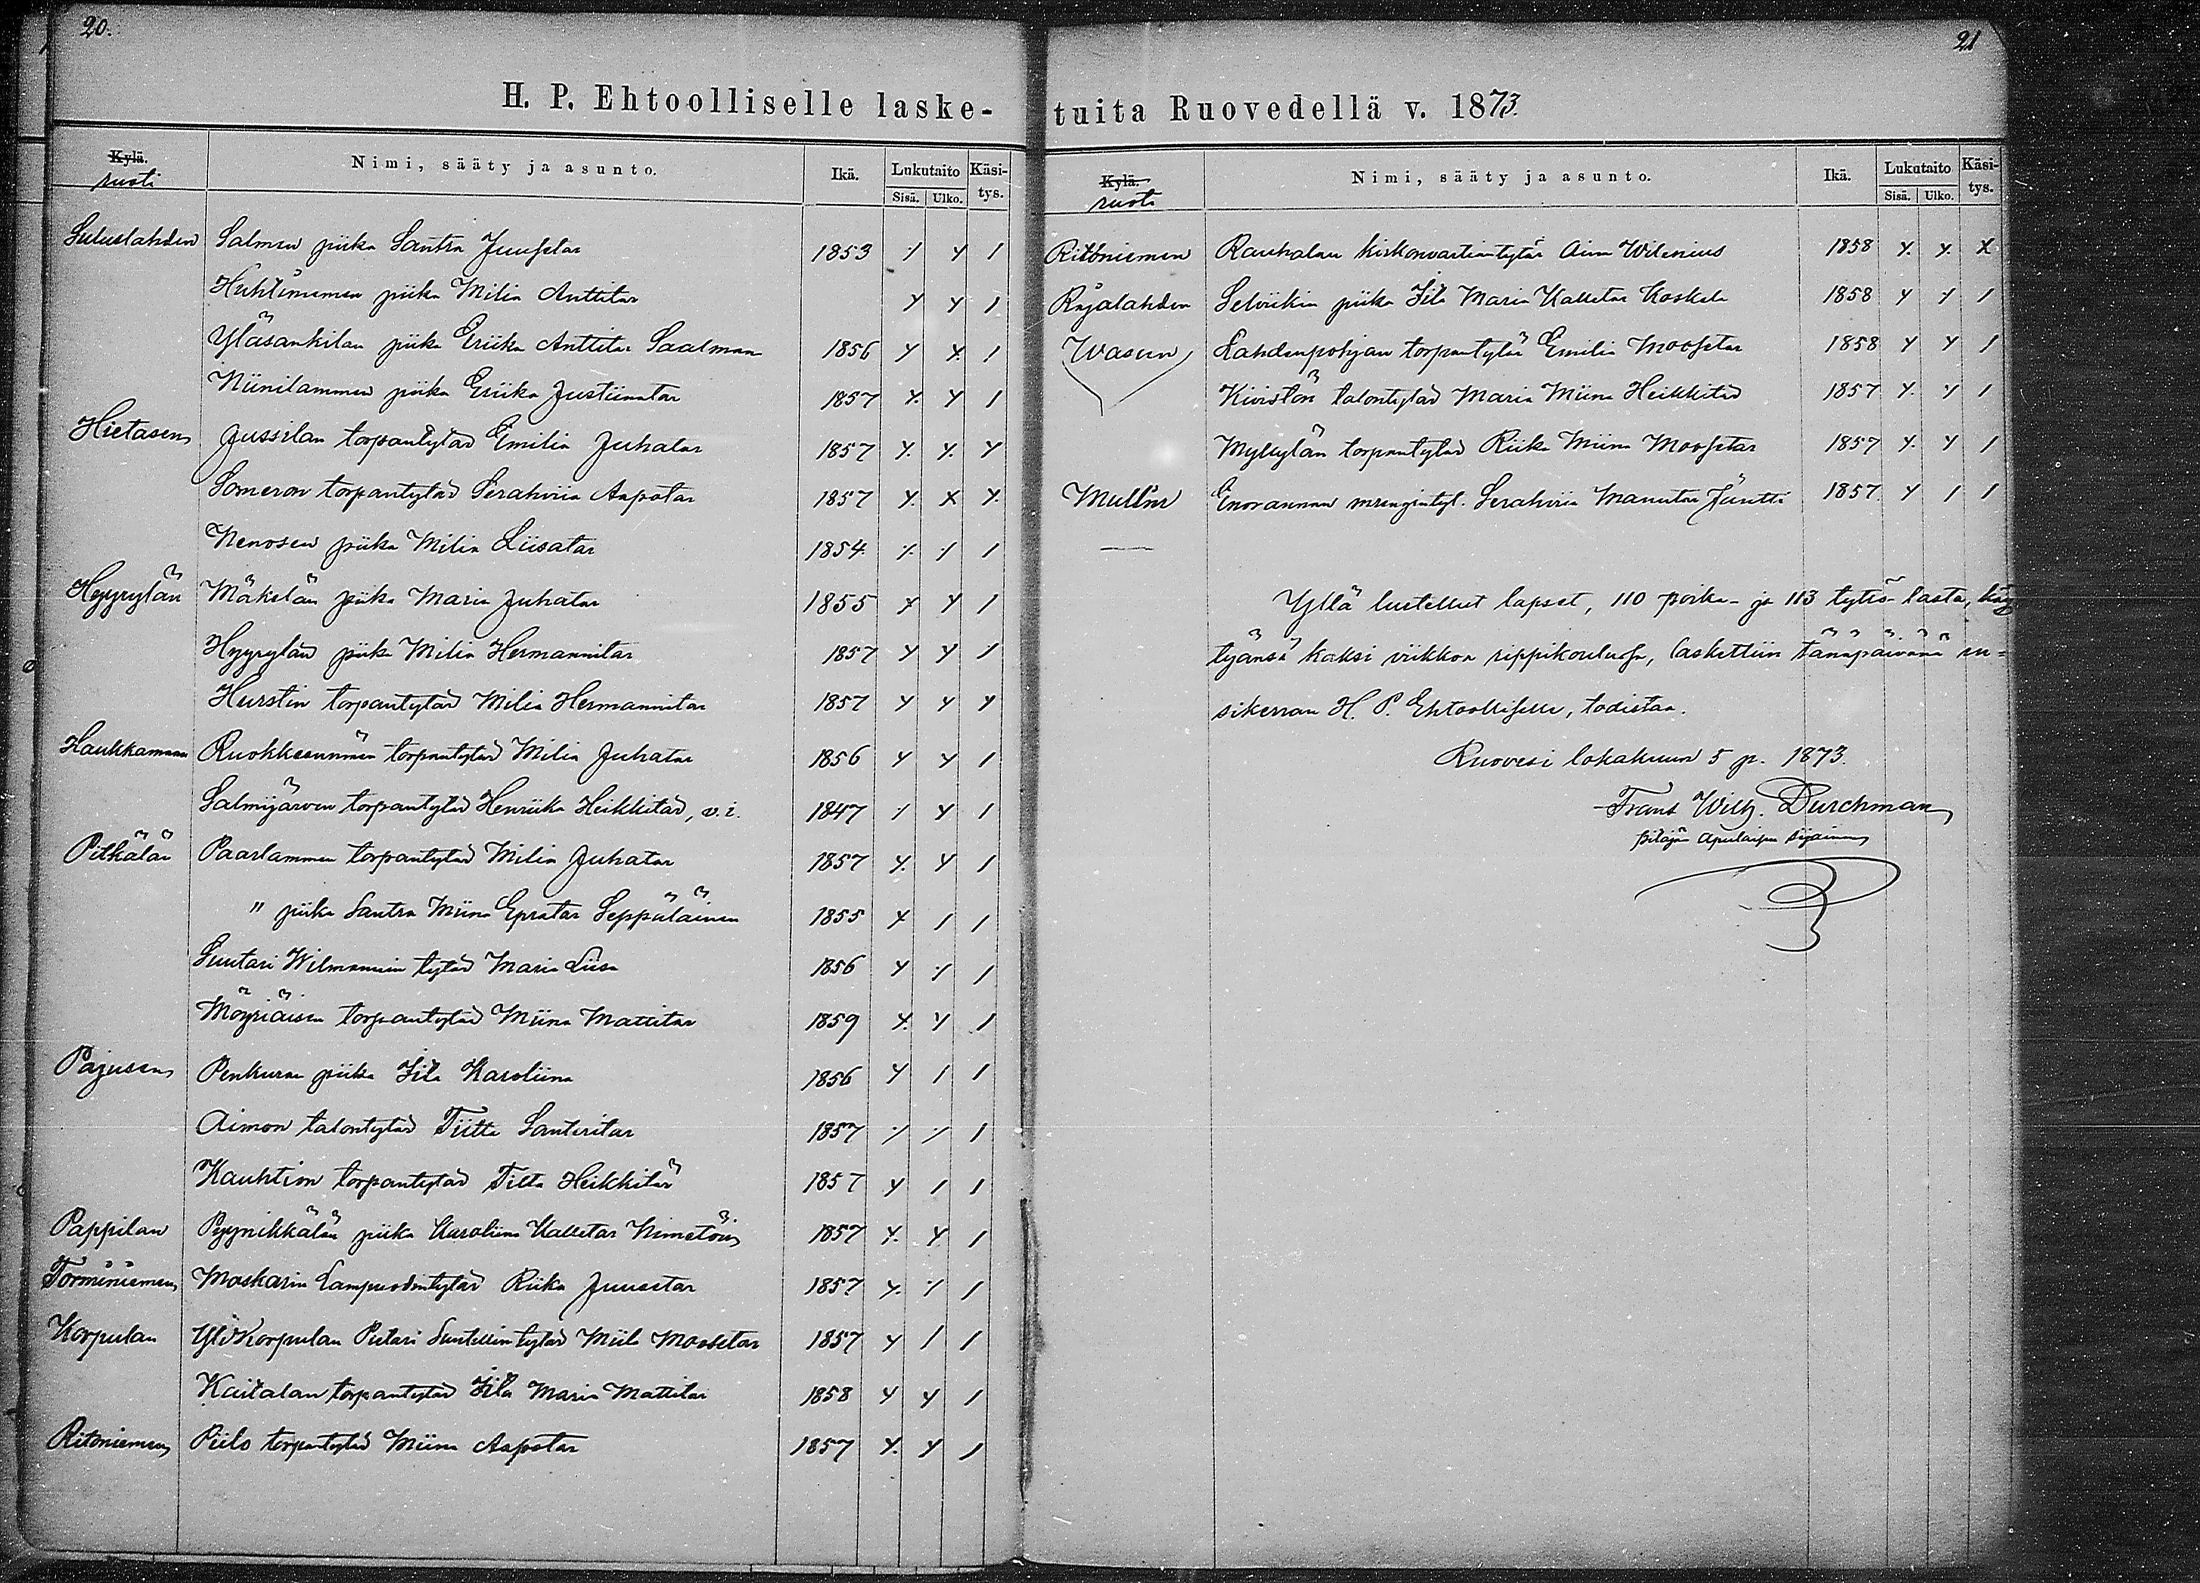 20.
H. P. Ehtoolliselle laske-
Kylä.
ruoti
Nimi, sääty ja asunto.
Ikä.
Lukutaito
Sisä. Ulko.
Käsitys.
Salmen piika Santra Juusetar 1853
piika Milia Anttitar
Yläsankilan piika Eriika Anttitar Saalman 1856
Niinilammen piika Eriika Justiinatar 1857
Hietasen Jussilan torpantytär Emilia Juhatar 1857
Someron torpantytär Serahviia Aapotar 1857
Nenosen piika Milia Liisatar 1854
Hyyrylän Mäkelän piika Maria Juhatar 1855
Hyyrylän piika Milia Hermannitar 1857
Hurstin torpantytär Milia Hermannitar 1857
torpantytär Milia Juhatar 1856
Salmijärven torpantytär Henriika Heikkitär, v.i. 1847
Pitkälän Paarlammen torpantytär Milia Juhatar 1857
" piika Santra Miina Epratar Seppäläinen 1855
Suutari Wilmannin tytär Maria Liisa 1856
Möyriäisen torpantytär Miina Mattitar 1859
Pajusen Penkuran piika Iita Karoliina 1856
Aimon talontytär Tiitta Santeritar 1857
Kauhtion torpantytär Tilta Heikkitär 1857
Pappilan Pyynikkälän piika Karoliina Kalletar Nimetöin 1857
Torminiemen Moskarin Lampuodintytär Riika Juusetar 1857
Korpulan YliKorpulan Pietari Suutellin tytär Miila Moosetar 1857
Kaitalan torpantytär Iita Maria Mattitar 1858
Ritoniemen Piilo torpantytär Miina Aapotar 1857
21
tuita Ruovedellä v. 1873.
Kylä.
ruoti
Nimi, sääty ja asunto.
Ikä.
Lukutaito
Sisä. Ulko.
Käsitys.
Ritoniemen Rauhalan kirkonvartiantytär Aina Wilenius 1858
Rajalahden Selviikin piika Iita Maria Kalletar Koskela 1858
Wasun Lahdenpohjan torpantytär Emilia Moosetar 1858
Kiviston talontytär Maria Miina Heikkitär 1857
Myllylän torpantytär Riika Miina Moosetar 1857
Enorannan Serahviia Manutar Jäntti 1857
Yllä luetellut lapset, 110 poika- ja 113 tyttö-lasta, käy
tyänsä kaksi viikkoa rippikoulussa, laskettiin tänäpäivänä en-
sikerran H. P. Ehtoolliselle, todistaa.
Ruovesi lokakuun 5 p. 1873.
Frans Wilh. Durchman
pitäjän apulaisen sijainen